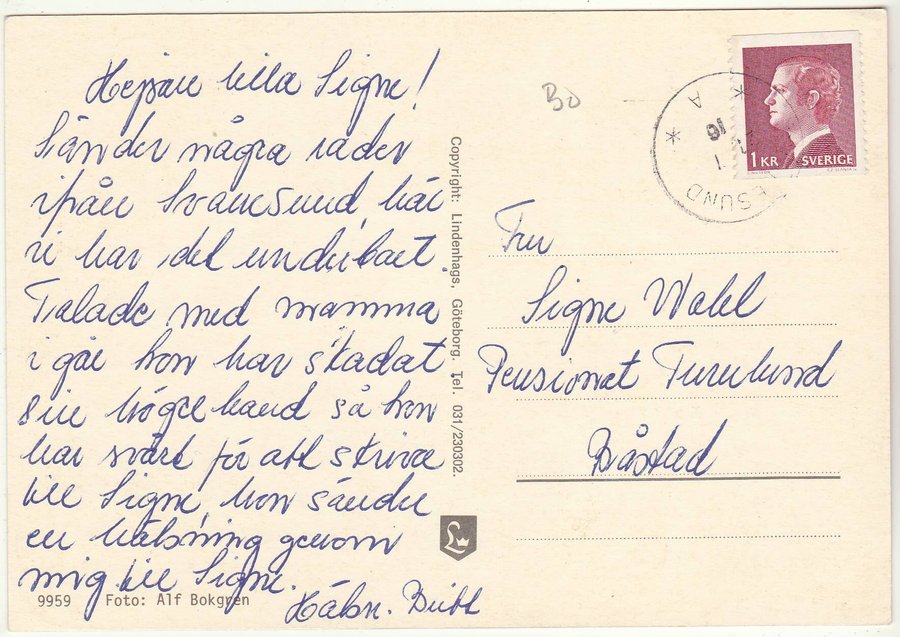 Hejsan lilla Signe!
Sänder några rader
ifrån Svanesund, här
vi har det underbart.
Talade med mamma
i går hon har skadat
sin högra hand så hon
har svårt för att skriva
till Signe, hon sänder
en hälsning genom
mig till Signe.
Hälsn. Britt
9959 Foto: Alf Bokgren
Copyright: Lindenhags, Göteborg. Tel. 031/230302.
L
Bo
1 KR SVERIGE
ESUND
A
Fru
Signe Wahl
Pensionat Furulund
Båstad